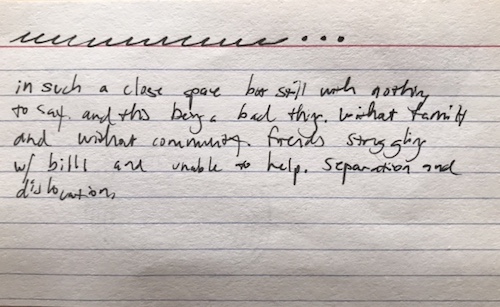 in such a close space but still with nothing
to say. and this being a bad thing. without family
and without community. friends struggling
w/ bills and unable to help. separation and
dislocation,